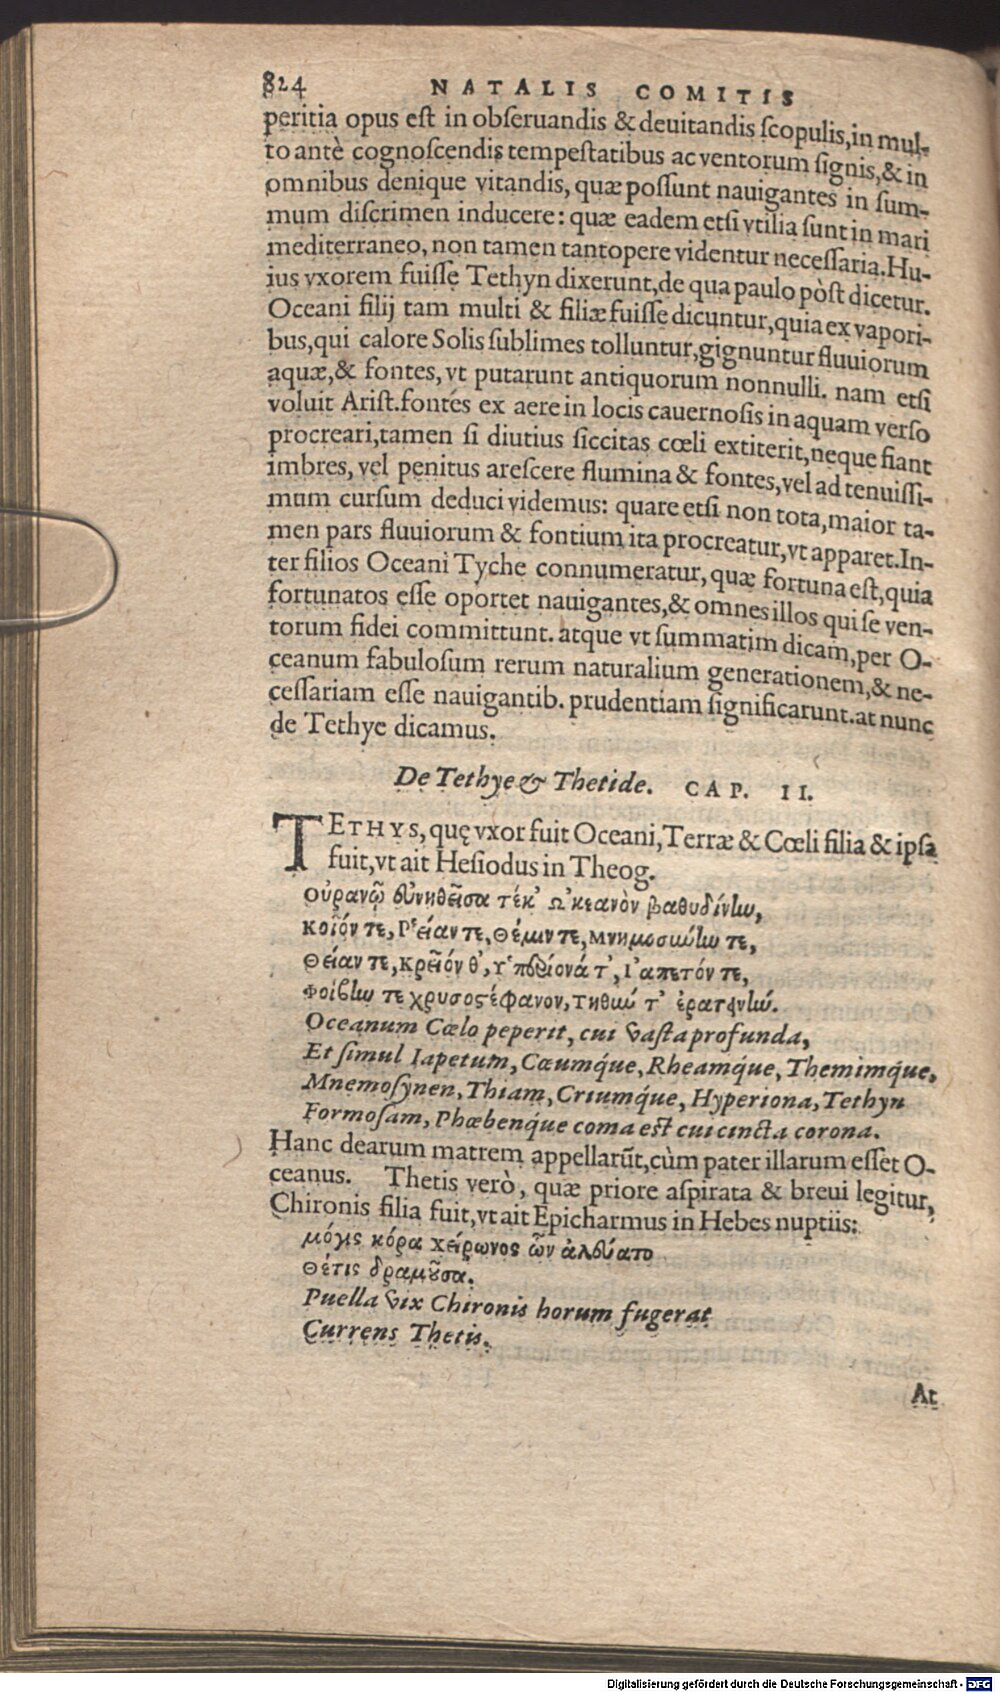 824 NATALIS COMITIS
peritia opus est in obſeruandis & deuitandis ſcopulis, in mul-
to antè cognoſcendis tempeſtatibus ac ventorum ſignis, & in
omnibus denique vitandis, quæ poſſunt nauigantes in ſum-
mum diſcrimen inducere: quæ eadem etſi vtilia ſunt in mari
mediterraneo, non tamen tantopere videntur neceſſaria. Hu-
ius vxorem fuiſſe Tethyn dixerunt, de qua paulo pòſt dicetur.
Oceani filij tam multi & filiæ fuiſſe dicuntur, quia ex vapori-
bus, qui calore Solis ſublimes tolluntur, gignuntur fluuiorum
aquæ, & fontes, vt putarunt antiquorum nonnulli. nam etſi
voluit Ariſt. fontes ex aere in locis cauernoſis in aquam verſo
procreari, tamen ſi diutius ſiccitas cœli extiterit, neque fiant
imbres, vel penitus areſcere flumina & fontes, vel ad tenuiſſi-
mum curſum deduci videmus: quare etſi non tota, maior ta-
men pars fluuiorum & fontium ita procreatur, vt apparet. In-
ter filios Oceani Tyche connumeratur, quæ fortuna eſt, quia
fortunatos eſſe oportet nauigantes, & omnes illos qui ſe ven-
torum fidei committunt. atque vt ſummatim dicam, per O-
ceanum fabuloſum rerum naturalium generationem, & ne-
ceſſariam eſſe nauigantib. prudentiam ſignificarunt. at nunc
de Tethye dicamus.
De Tethye & Thetide. CAP. II.
TETHYS, quę vxor fuit Oceani, Terræ & Cœli filia & ipſa
fuit, vt ait Heſiodus in Theog.
οὐρανῷ εὐνηθεῖσα τέκ' Ω'κεανὸν βαθυδίνην,
κοῖόν τε, Ρ῾είαν τε, Θέμιν τε, Μνημοσύνην τε,
Θείαν τε, κρεῖόν θ', Υ῾περίονά τ', Ι'απετόν τε,
Φοίβην τε χρυσοστέφανον, τηθύν τ' ἐρατεινήν.
Oceanum Cœlo peperit, cui vaſta profunda,
Et ſimul Iapetum, Cæumq́ue, Rheamq́ue, Themimq́ue,
Mnemoſynen, Thiam, Criumq́ue, Hyperiona, Tethyn
Formoſam, Phœbenq́ue coma eſt cui cincta corona.
Hanc dearum matrem appellarūt, cùm pater illarum eſſet O-
ceanus. Thetis verò, quæ priore aſpirata & breui legitur,
Chironis filia fuit, vt ait Epicharmus in Hebes nuptiis:
μόγις κόρα χείρωνος ὧν ἀλεύατο
Θέτις δραμοῦσα.
Puella vix Chironis horum fugerat
Currens Thetis.
At
Digitalisierung gefördert durch die Deutsche Forschungsgemeinschaft - DFG